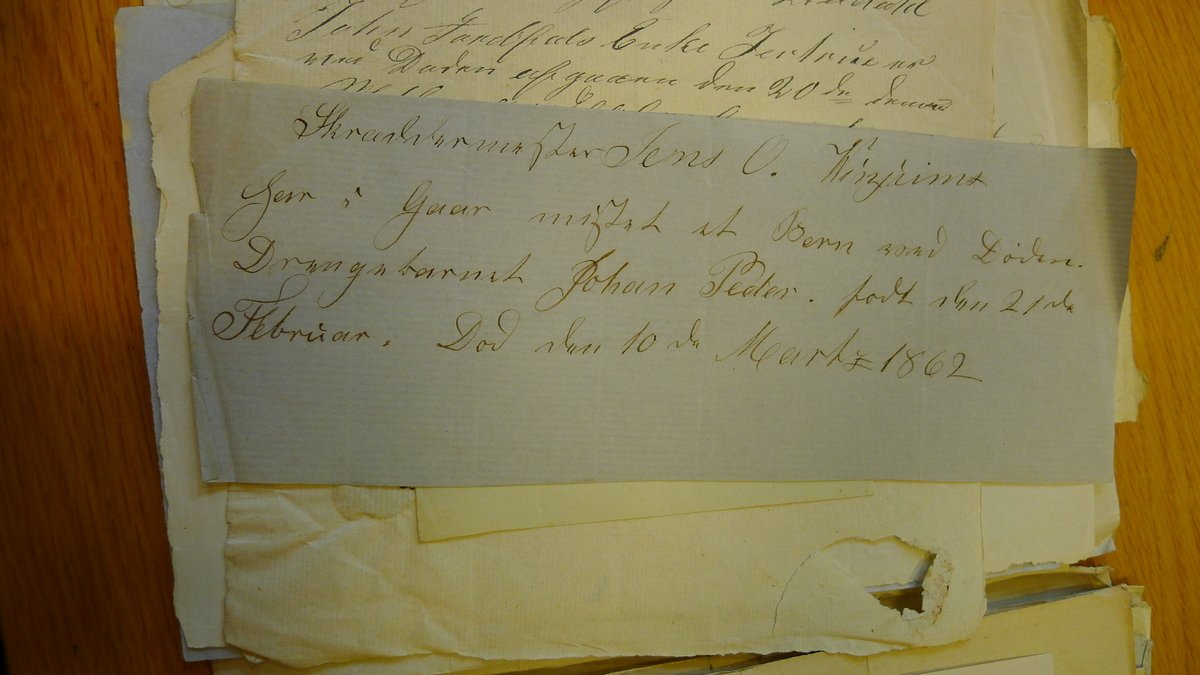 John Enke er
ved Døden afgaaen den 20 de
Skræddermester Jens O.
Har i Gaar mistet et Børn ved Døden.
Drengebarnet Johan Peder. født den 21de
Februar. Død den 10 de Martz 1862